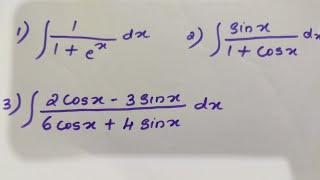 1) ∫ 1/(1 + e^x) dx 2) ∫ sinx/(1 + cosx) dx
3) ∫ (2cosx - 3sinx)/(6cosx + 4sinx) dx